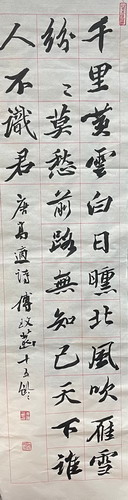 千里黃雲白日曛北風吹雁雪
紛〻莫愁前路無知己天下誰
人不識君
唐高適詩